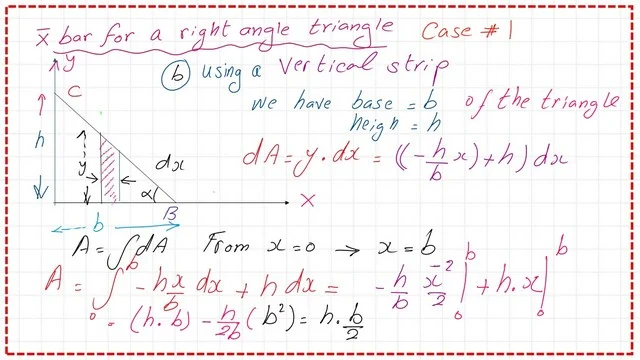 x̄ bar for a right angle triangle Case # 1
b using a Vertical strip
we have base = b of the triangle
heigh = h
dA = y · dx = ((-h/b x) + h) dx
y
C
h
y
dx
α
B
x
b
A = ∫dA From x=0 → x=b
A = ∫₀ᵇ -hx/b dx + h dx = -h/b x²/2 |₀ᵇ + h·x |₀ᵇ
= (h·b) - h/2b (b²) = h·b/2